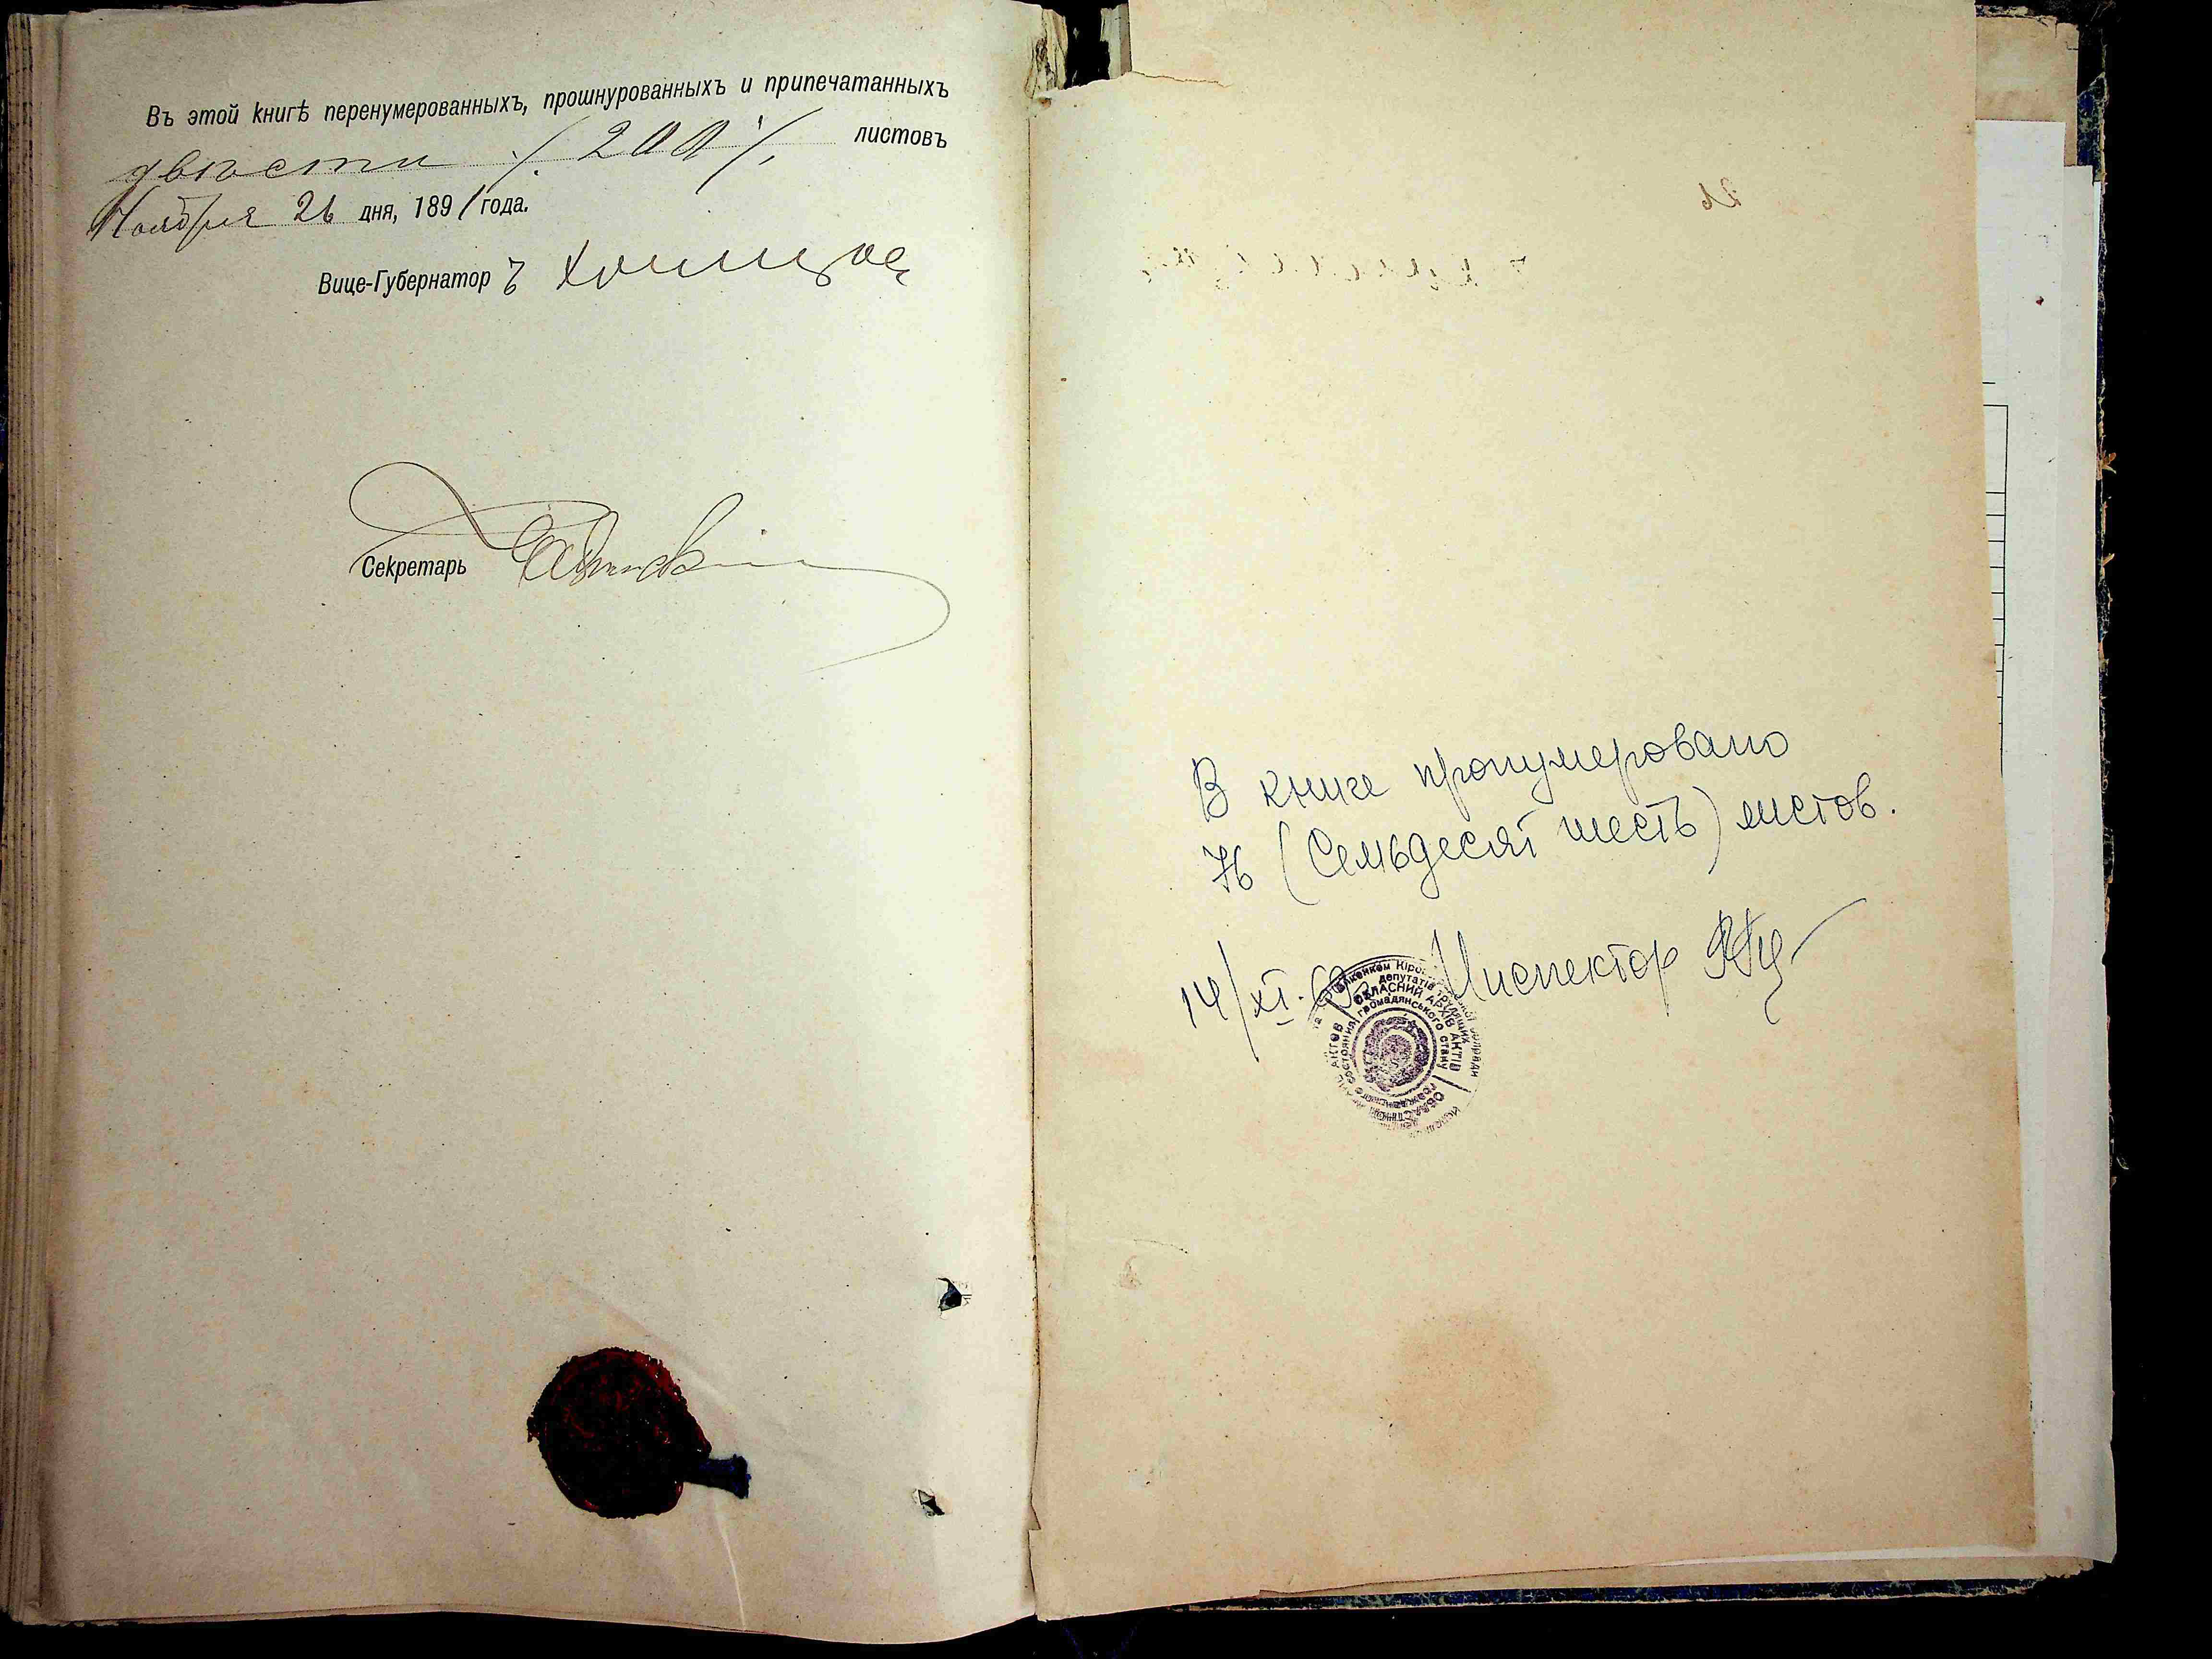 Въ этой книгѣ перенумерованныхъ, прошнурованныхъ и припечатанныхъ
двѣсти ./. 200 ./. листовъ
Ноября 26 дня, 1891 года.
Вице-Губернаторъ
Секретарь
26
В книге пронумеровано
76 (Семьдесят шесть) листов.
14/XI. Инспектор
депутатів трудящих
ОБЛАСНИЙ АРХІВ АКТІВ
громадянського стану